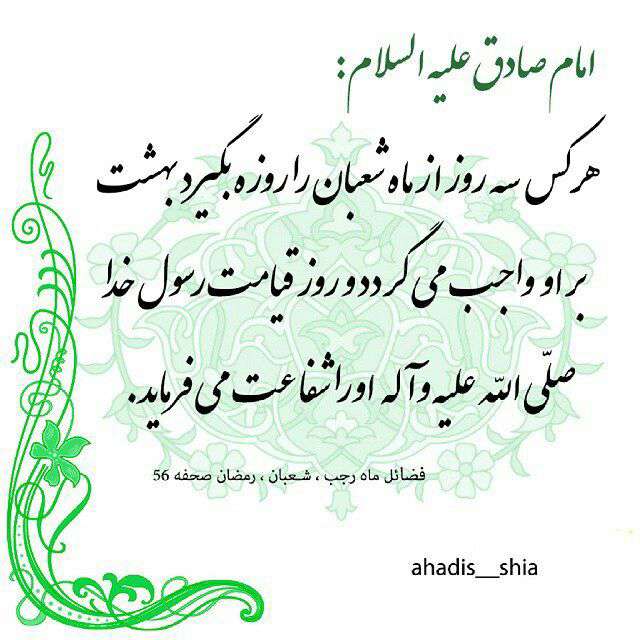 امام صادق علیه السلام:
هرکس سه روز از ماه شعبان را روزه بگیرد بهشت
بر او واجب می گردد و روز قیامت رسول خدا
صلّی اللّه علیه وآله او را شفاعت می فرماید.
فضائل ماه رجب ، شعبان ، رمضان صحفه 56
ahadis__shia